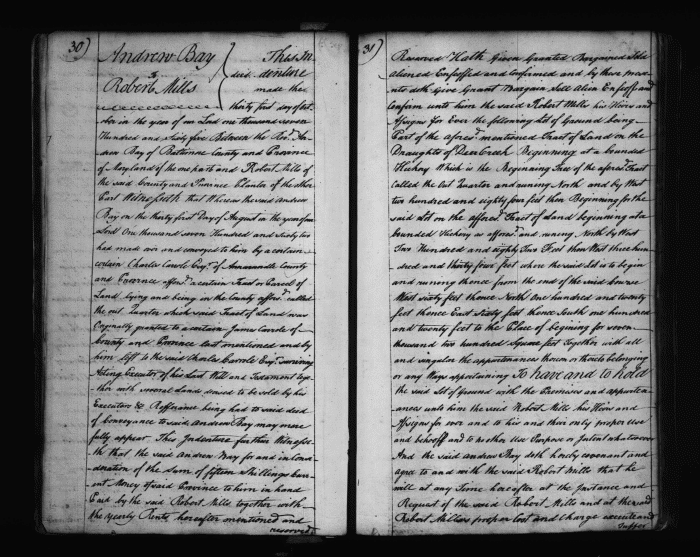 30)
Andrew Bay
to
Robert Mills
deed
This In
denture
made the
thirty first day of Octo
ober in the year of our Lord one thousand seven
Hundred and Sixty five Between the Revd. An-
drew Bay of Baltimore County and Province
of Maryland of the one part and Robert Mills of
the said County and Province Planter of the other
Part Witnesseth that Whereas the said Andrew
Bay on the thirty first Day of August in the year of our
Lord One thousand seven Hundred and Sixty two
had made over and conveyed to him by a certain
certain Charles Carrole Esqr. of Annarundle County
and Province afford. a certain Tract or Parcel of
Land lying and being in the County afford. called
the out Quarter which said Tract of Land was
Originally granted to a certain James Carrole of
County and Province last mentioned and by
him left to the said Charles Carrole Esqr. surviving
Acting Executor of his Last Will and Testament toge-
ther with several Lands devised to be sold by his
Executors &c Refference being had to said deed
of conveyance to said Andrew Bay may more
fully appear This Indenture further Witnesse
th that the said Andrew Bay for and in Consi
deration of the Sum of fifteen Shillings Curr-
ent Money of said Province to him in hand
Paid by the said Robert Mills together with
the yearly Rents hereafter mentioned and
reserved
31)
Reserved Hath Given Granted Bargained Sold
aliened Enfeoffed and Confirmed and by these prese-
nts doth Give Grant Bargain Sell alien Enfeoff and
Confirm unto him the said Robert Mills his Heirs and
Assigns for Ever the following Lot of Ground being
Part of the aforesd. mentioned Tract of Land on the
Draughts of Deer Creek Beginning at a bounded
Hickory Which is the Beginning Tree of the aforesd. Tract
called the Out Quarter and runing North and by West
two hundred and eighty four feet then Beginning for the
said Lot on the afforesd. Tract of Land beginning at a
bounded Hickory as afforesd. and runing North by West
Two Hundred and eighty Two Feet then West three hun-
dred and thirty four feet where the said Lot is to begin
and runing thence from the end of the said Course
West sixty feet thence North one hundred and twenty
feet thence East Sixty feet thence South one hundred
and twenty feet to the Place of begining for seven-
thousand two hundred Square feet Together with all
and singular the appurtenances thereon or thereto belonging
or any Ways appertaining To have and to hold
the said Lot of ground with the Premises and appurten-
ances unto him the said Robert Mills his Heirs and
Assigns for ever and to his and their only proper use
and behoof and to no other Use Purpose or Intent whatsoever
And the said andrew Bay doth hereby covenant and
agree to and with the said Robert Mills that he
will at any Time hereafter at the Instance and
Request of the said Robert Mills and at the said
Robert Mills's proper Cost and Charge execute and
suffer